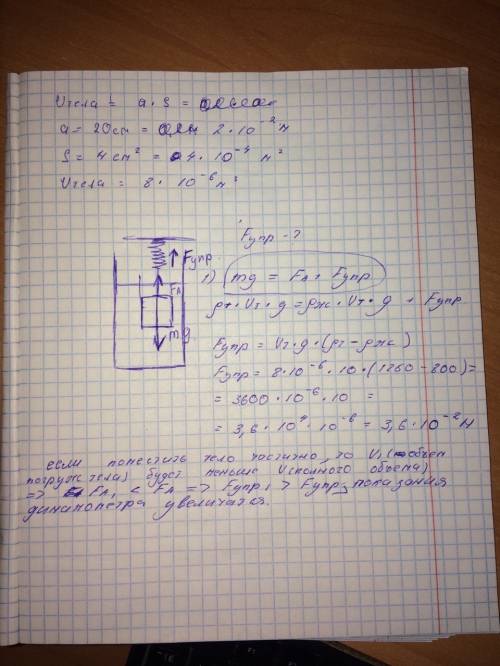 Vтела = a · S =
a = 20см = 2 · 10⁻² м
S = 4 см² = 4 · 10⁻⁴ м²
Vтела = 8 · 10⁻⁶ м³
Fупр - ?
Fупр
FA
mg
1) mg = FA + Fупр
ρт · Vт · g = ρж · Vт · g + Fупр
Fупр = Vт · g · (ρт - ρж)
Fупр = 8 · 10⁻⁶ · 10 · (1260 - 800) =
= 3600 · 10⁻⁶ · 10 =
= 3,6 · 10⁴ · 10⁻⁶ = 3,6 · 10⁻² Н
если поместить тело частично, то V₁ (объем
погруж тела) будет меньше V (полного объема)
=> FA₁ < FA => Fупр₁ > Fупр показания
динамометра увеличатся.